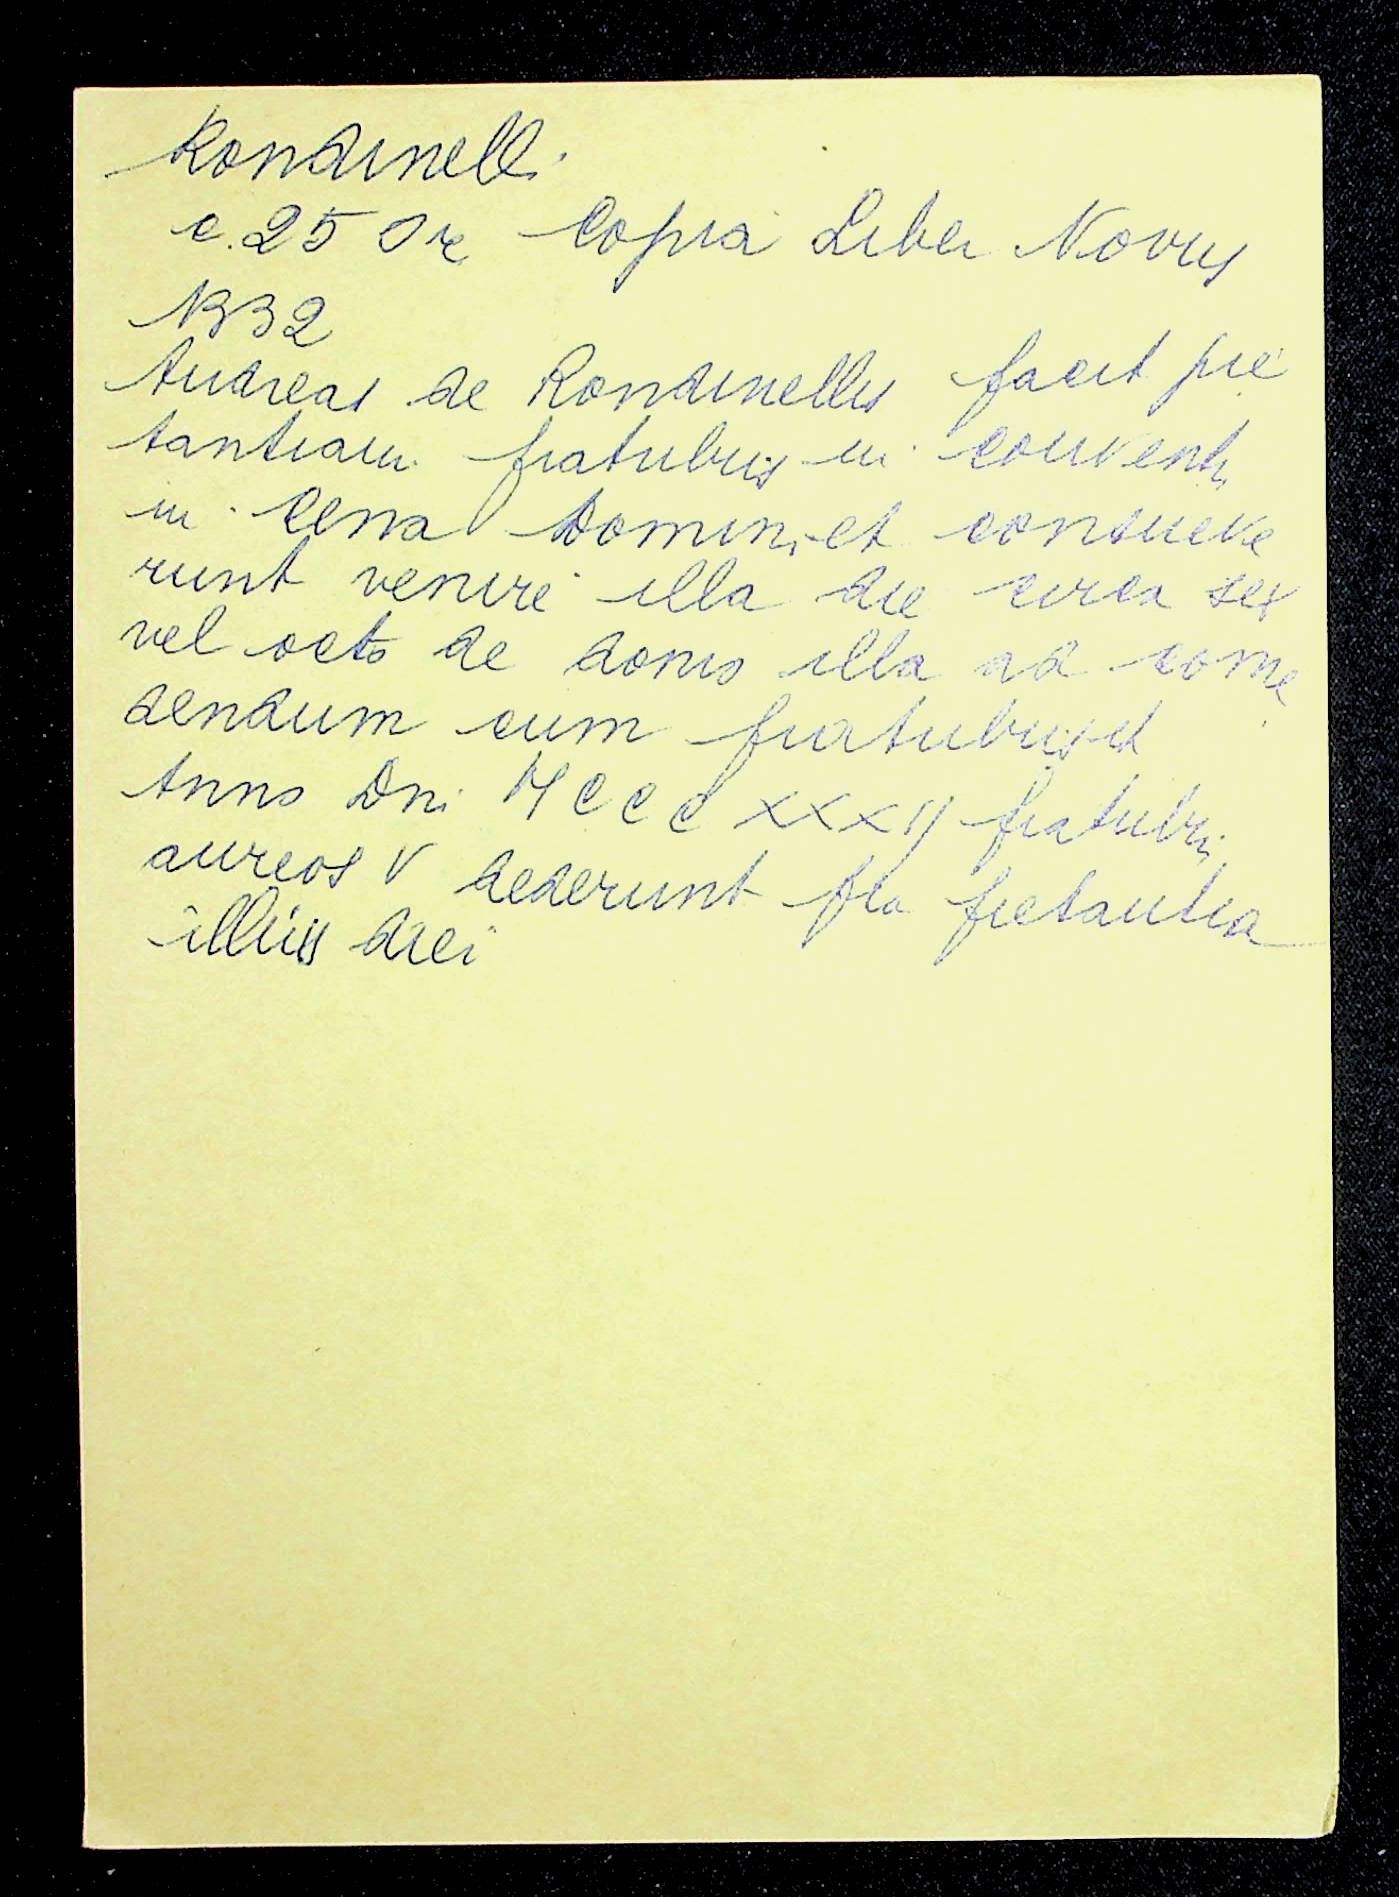 Rondinelli
c. 25 Or Copia Liber Novus
1332
Andreas de Rondinellis facit pie
tantiam fratribus in conventu
in Cena Domini et consueve
runt venire illa die circa sex
vel octo de domo illa ad come
dendum cum fratribus et
Anno Dni MCCCXXXIJ fratribus
aureos V dederunt pro pietantia
illius diei